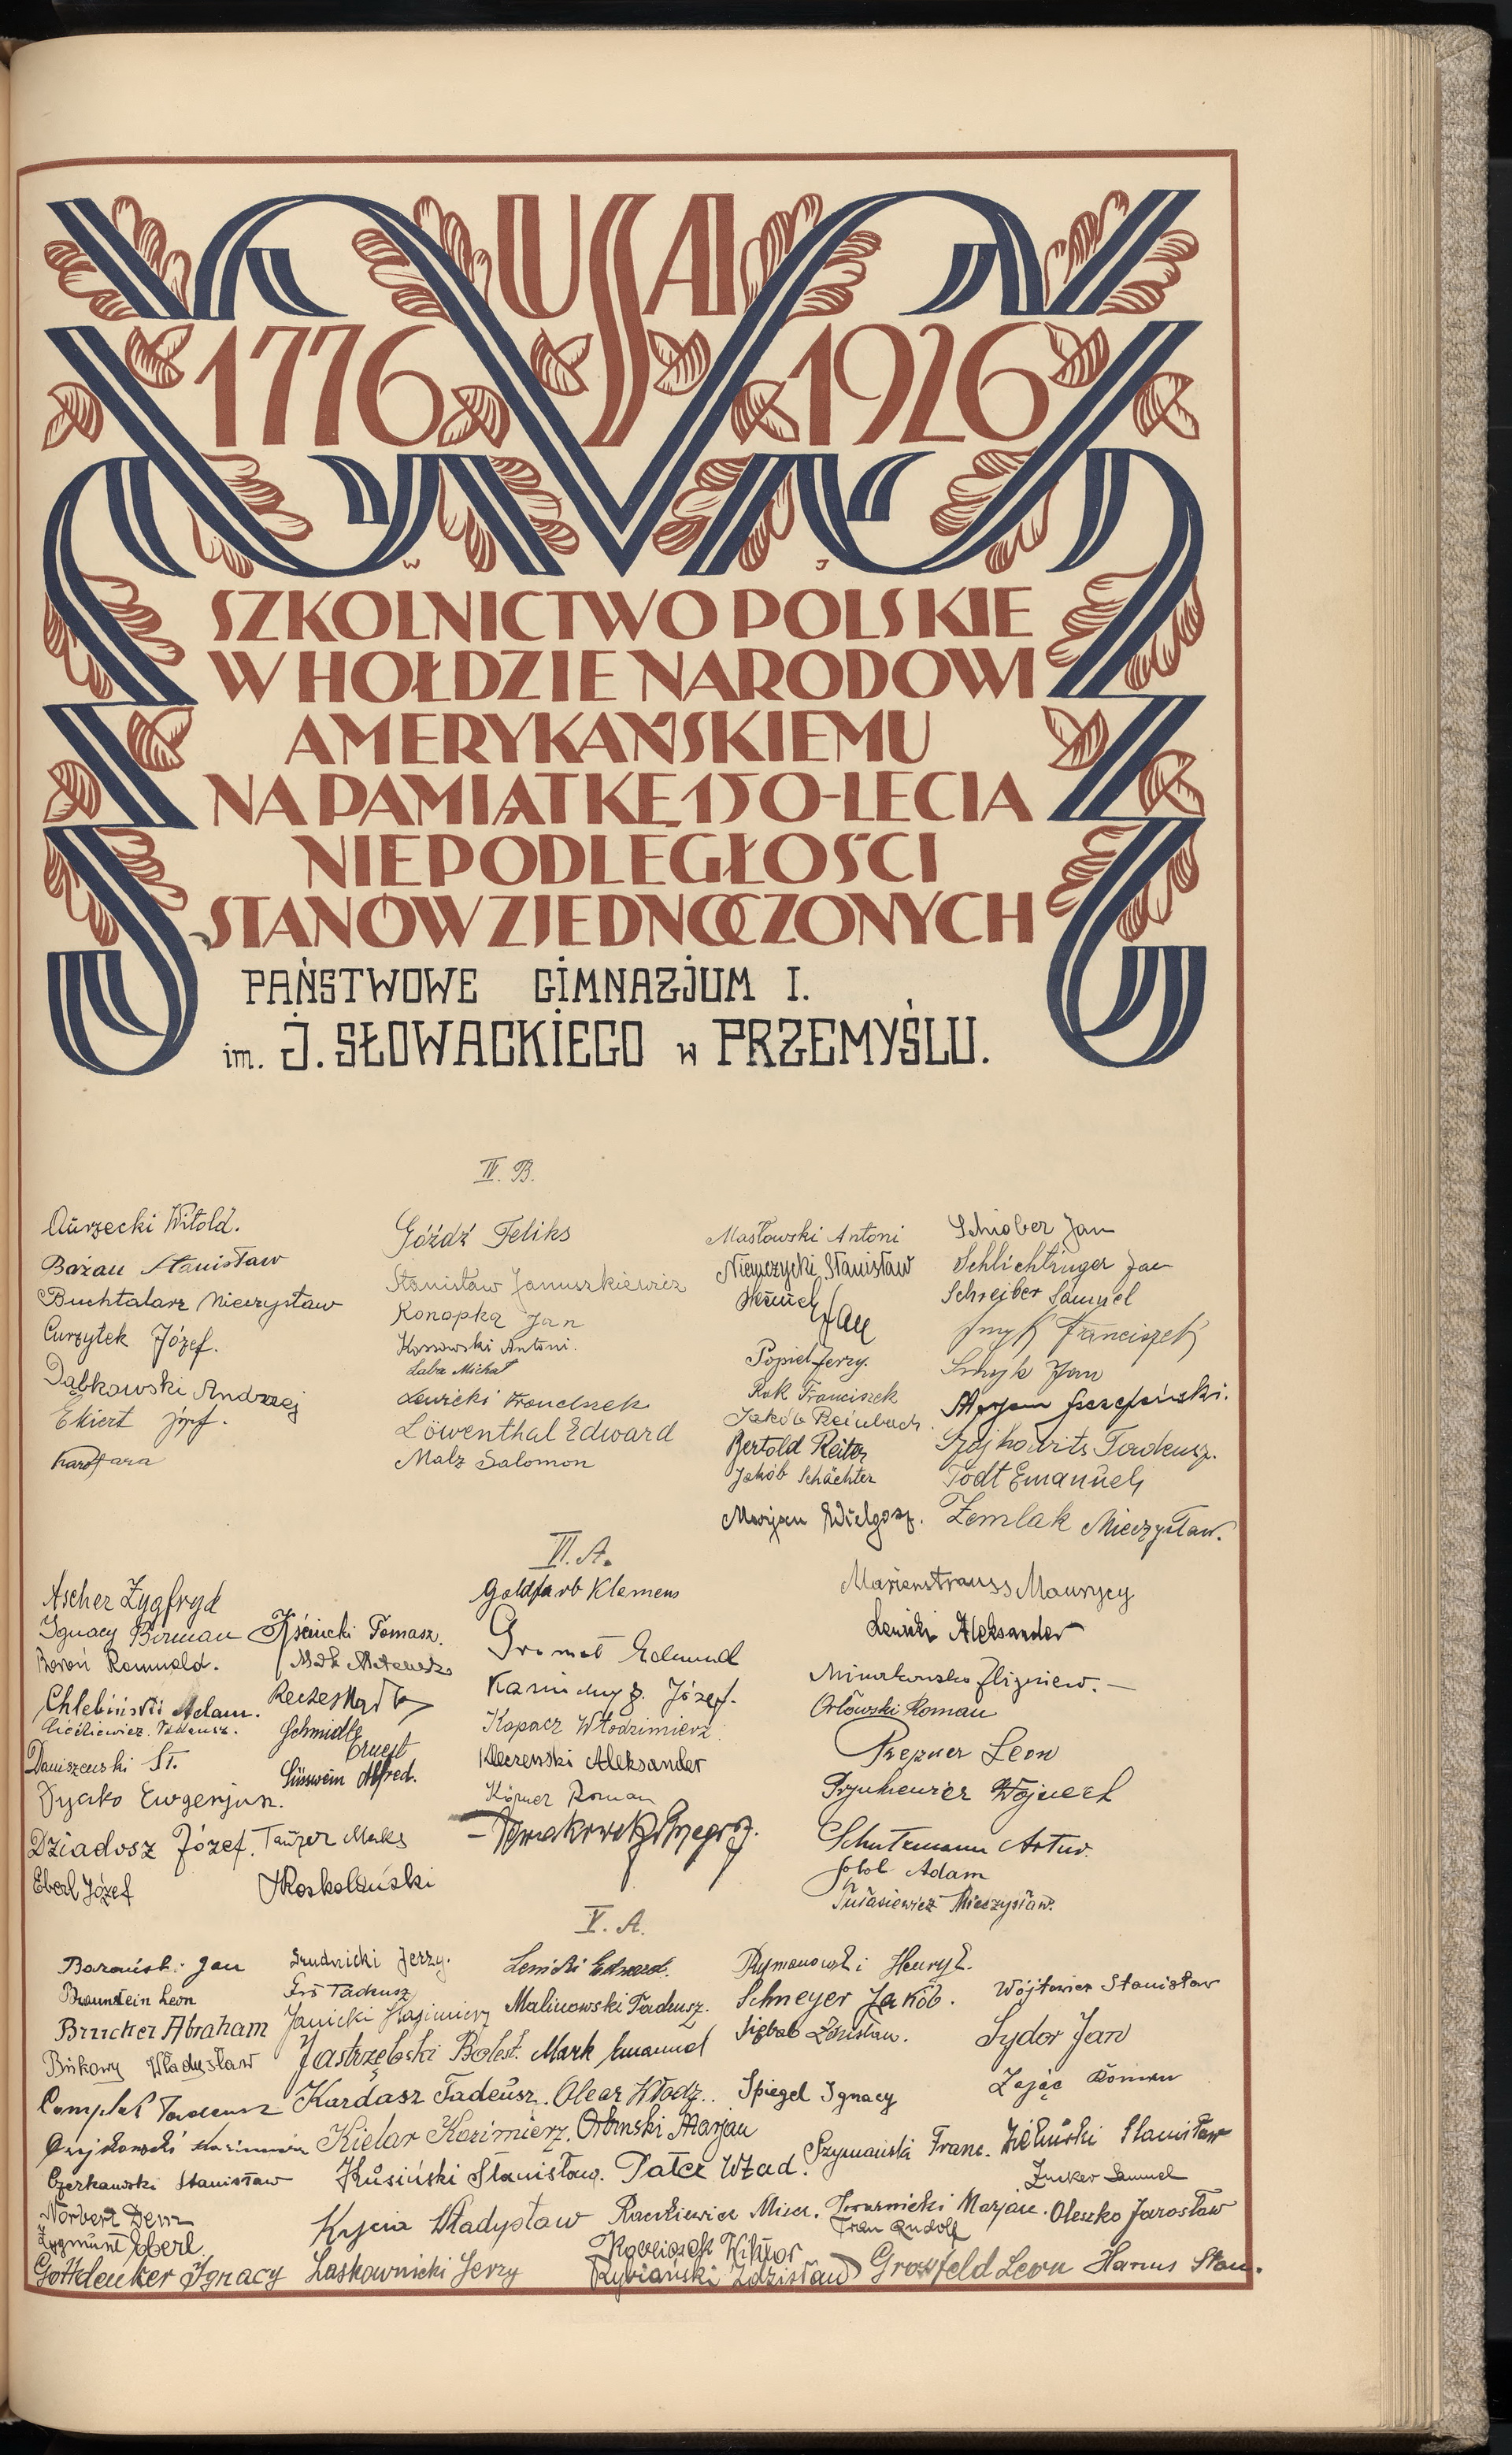 USA
1776 1926
W J
SZKOLNICTWO POLSKIE
W HOŁDZIE NARODOWI
AMERYKAŃSKIEMU
NA PAMIĄTKĘ 150-LECIA
NIEPODLEGŁOŚCI
STANÓW ZJEDNOCZONYCH
PAŃSTWOWE GIMNAZJUM I.
im. J. SŁOWACKIEGO w PRZEMYŚLU.
IV. B.
Aurzecki Witold.
Bażan Stanisław
Buchtalarz Mieczysław
Curzytek Józef.
Dąbkowski Andrzej
Ekiert Józef.
Góźdź Feliks
Stanisław Januszkiewicz
Konopka Jan
Kossowski Antoni.
Laba Michał
Lewicki Franciszek
Löwenthal Edward
Malz Salomon
Masłowski Antoni
Niemczycki Stanisław
Jan
Popiel Jerzy.
Rak Franciszek
Jakób Reinbach.
Bertold Reiter
Jakób Schächter
Marjan Wielgosz.
Schiober Jan
Schlichtinger Jan
Schreiber Samuel
Smyk Franciszek
Smyk Jan
Marjan Szczepański.
Szajkowits Tadeusz.
Todt Emanuel
Zemlak Mieczysław.
VI. A.
Ascher Zygfryd
Ignacy Birman
Boroń Romuald.
Chlebiński Adam.
Cieślewicz Tadeusz.
Daniszewski St.
Dyako Eugenjusz.
Dziadosz Józef.
Eberl Józef
Kścincki Tomasz.
Schmidt Ernest
Süsswein Alfred.
Tanzer Maks
Goldfarb Klemens
Gromet Edmund
Józef.
Kopacz Włodzimierz
Kleczenski Aleksander
Körner Roman
Marienstrauss Maurycy
Lewicki Aleksander
Zbigniew.
Orłowski Roman
Prepner Leon
Wojciech
Schutzmann Artur.
Sobol Adam
Tułasiewicz Mieczysław.
V. A.
Barański Jan
Braunstein Leon
Brucker Abraham
Bukowy Władysław
Complak Tadeusz
Kazimierz
Czerkawski Stanisław
Norbert Denn
Zygmunt Eberl.
Gottdenker Ignacy
Grudnicki Jerzy.
Gro Tadeusz
Janicki Kazimierz
Jastrzębski Bolest.
Kardasz Tadeusz.
Kielar Kazimierz.
Kusiński Stanisław.
Krycia Władysław
Laskownicki Jerzy
Lewicki Edward.
Malinowski Tadeusz.
Mark Emanuel
Olear Włodz..
Orłinski Marjan
Patce Wład.
Raczkiewicz Miecz.
Wiktor
Rybiański Zdzisław
Rymanowski Henryk.
Schneyer Jakób.
Siębab Zdzisław.
Spiegel Ignacy
Szymański Franc.
Marjan.
Tran Rudolf
Growfeld Leon
Wójtowicz Stanisław
Sydor Jan
Zając Roman
Zieliński Stanisław
Zucker Samuel
Oleszko Jarosław
Hanus Stan.